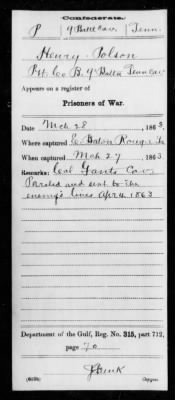 Confederate.
P | 9 Batt'n Cav. | Tenn.
Henry Polson
Pvt. Co B. 9 Battn Tenn Cav
Appears on a register of
Prisoners of War.
Date Mch 28, 1863.
Where captured E. Baton Rouge La
When captured Mch 27, 1863
Remarks: Col Gants Cav.
Paroled and sent to the
enemy's lines Apr 4 1863
Department of the Gulf, Reg. No. 315, part 712,
page 70
Copyist.